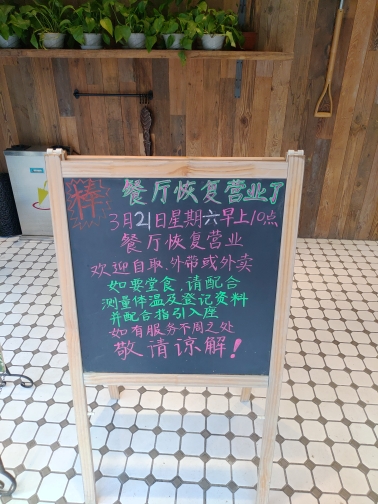 棒 餐厅恢复营业了
3月21日星期六早上10点
餐厅恢复营业
欢迎自取.外带或外卖
如要堂食.请配合
测量体温及登记资料
并配合指引入座
如有服务不周之处
敬请谅解!